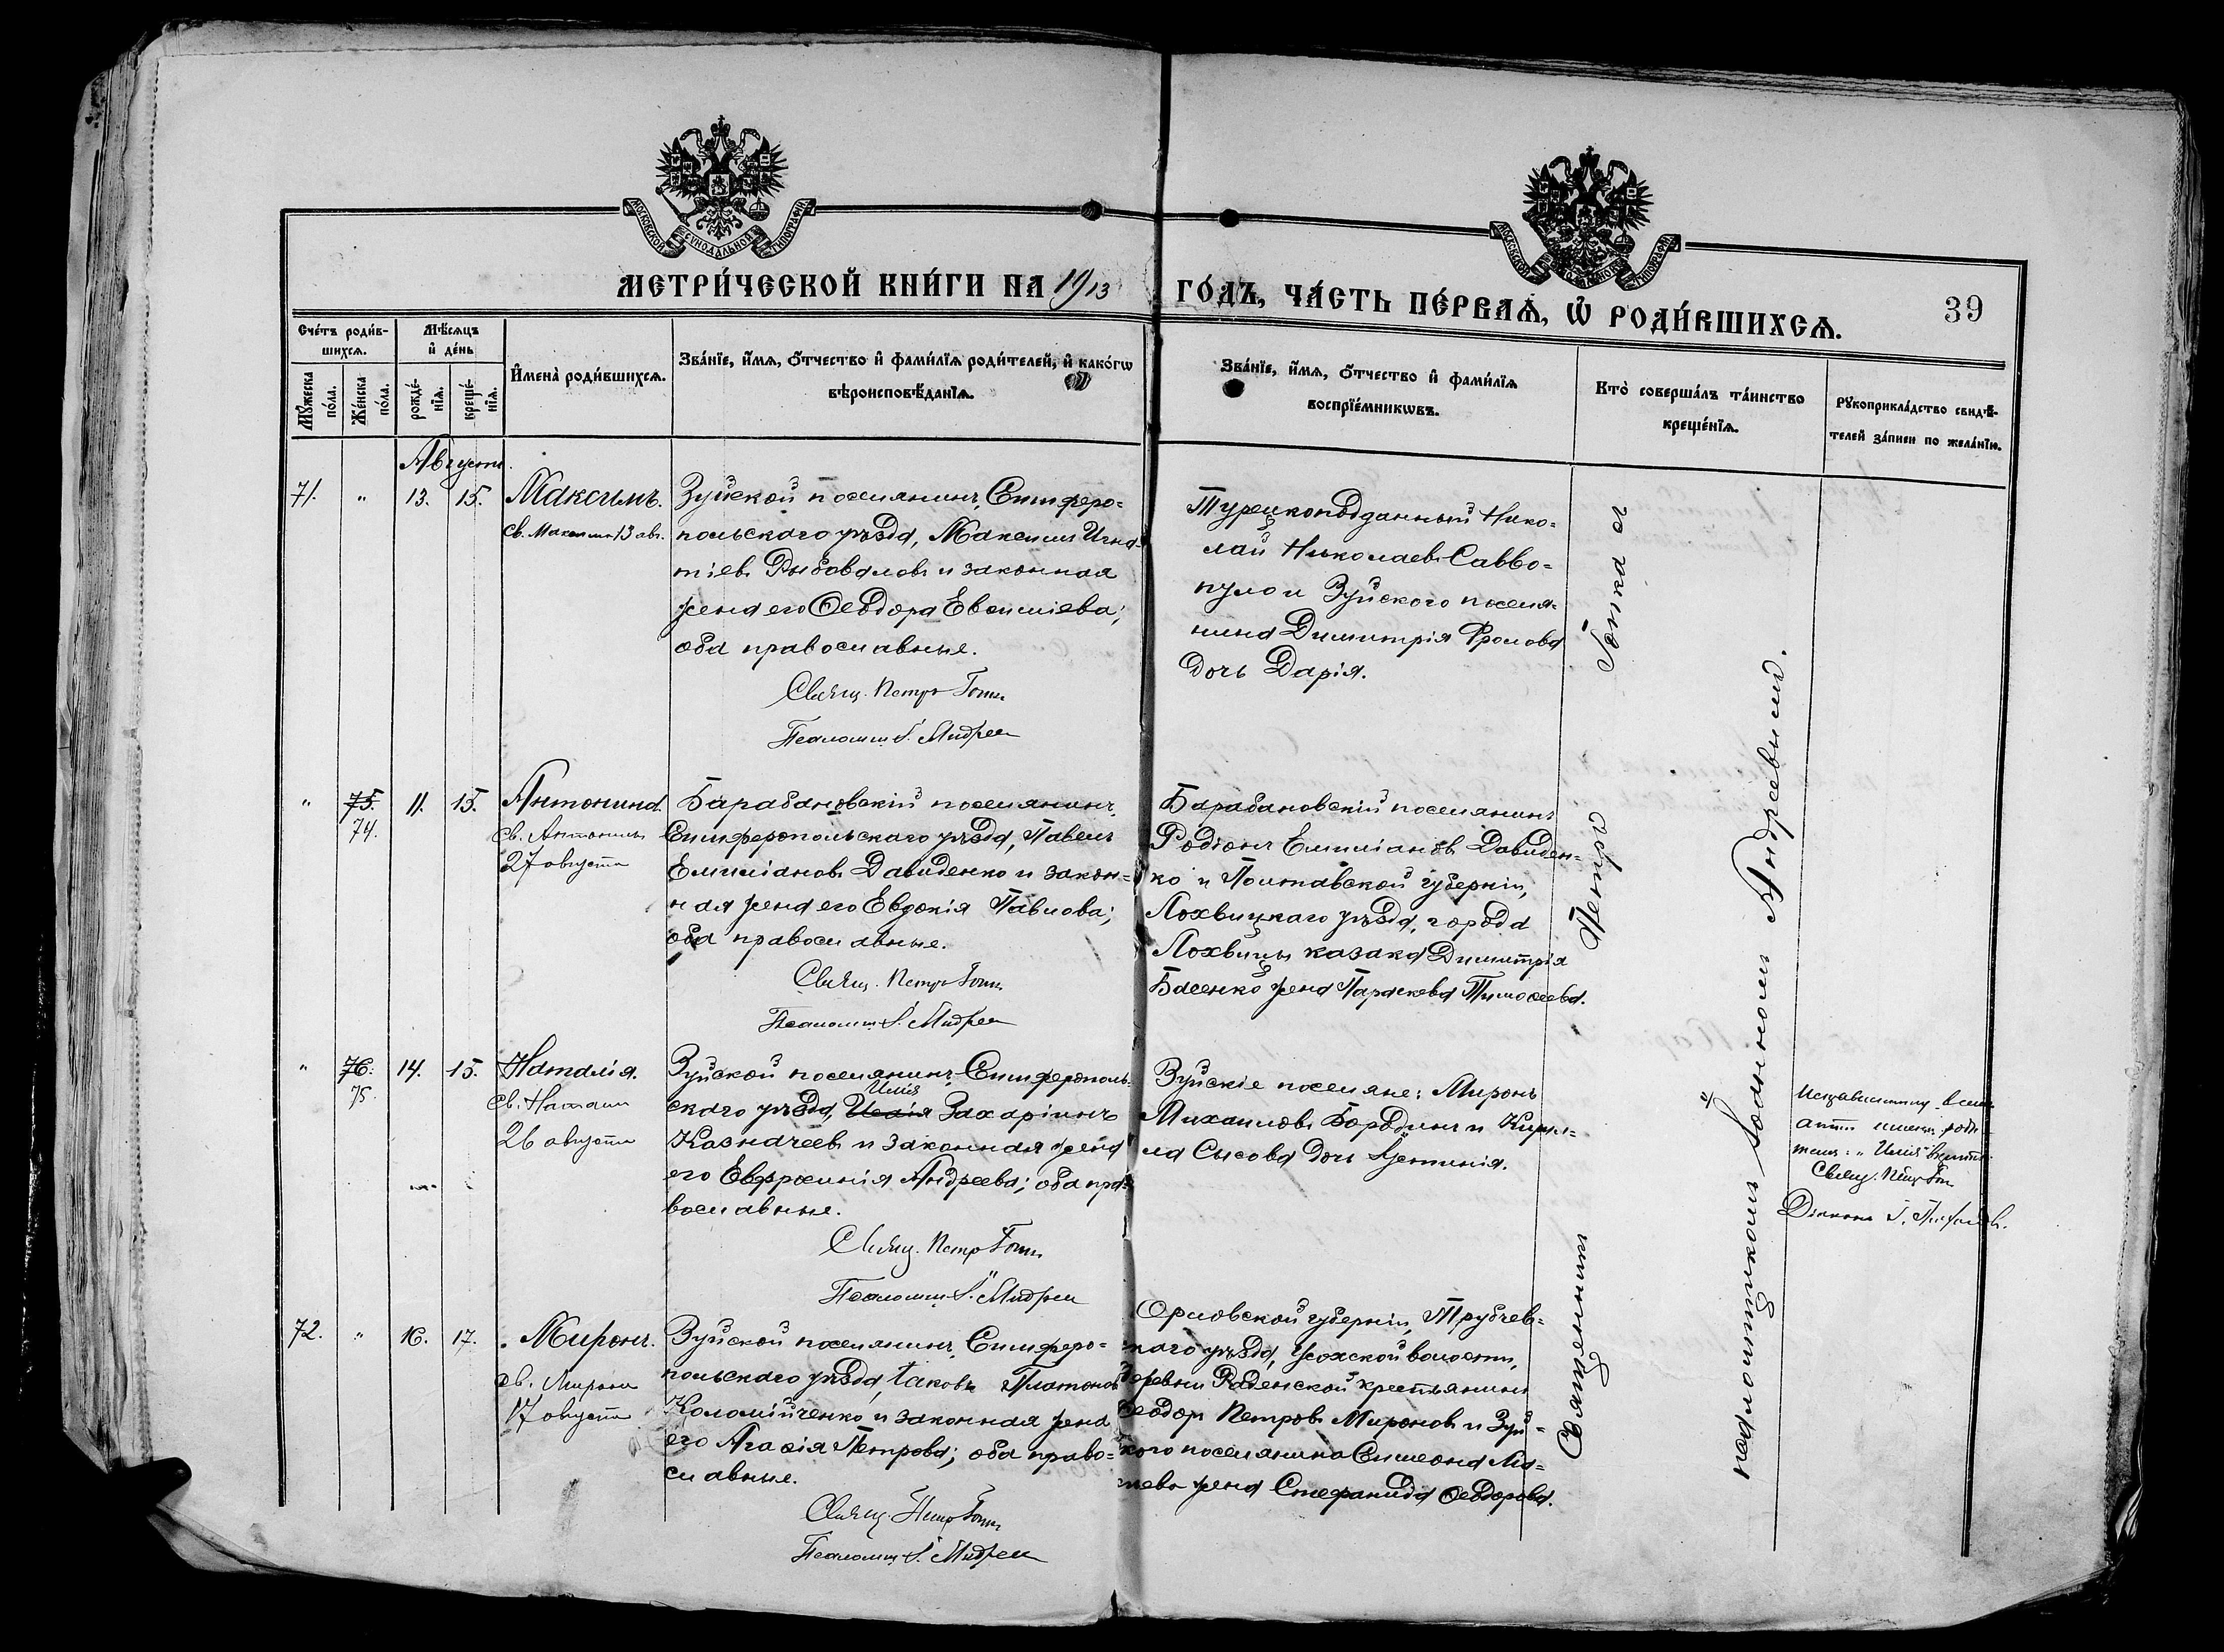 МОСКОВСКОЙ СѴНОДАЛЬНОЙ ТИПОГРАФІИ
МОСКОВСКОЙ СѴНОДАЛЬНОЙ ТИПОГРАФІИ
МЕТРИ́ЧЕСКОЙ КНИ́ГИ НА 1913 ГО́ДЪ, ЧА́СТЬ ПЕ́РВАѦ, Ѡ҆ РОДИ́ВШИХСѦ.
39
Сче́тъ роди́в-
шихсѧ.
Мꙋ́жеска по́ла.
Же́нска по́ла.
Мѣ́сѧцъ
и҆ де́нь
рожде́-
нїѧ.
креще́-
нїѧ.
И҆мена̀ роди́вшихсѧ.
Зва́нїе, и҆́мѧ, ѻ҆́тчество и҆ фами́лїѧ роди́телей, и҆ како́гѡ
вѣроисповѣ́данїѧ.
Зва́нїе, и҆́мѧ, ѻ҆́тчество и҆ фами́лїѧ
воспрїе́мникѡвъ.
Кто̀ соверша́лъ та́инство
креще́нїѧ.
Рꙋкоприкла́дство свидѣ́-
телей за́писи по жела́нїю.
Августъ.
71. " 13. 15. Максимъ.
св. Максима 13 авг.
Зуйской поселянинъ, Симферо-
польскаго уѣзда, Максимъ Игна-
тіевъ Рыбоваловъ и законная
жена его Ѳеодора Евѳиміева;
оба православные.
Свящ. Петръ
Псаломщ. І. Андрее
Турецкоподданный Нико-
лай Николаевъ Савво-
пуло и Зуйского поселя-
нина Димитрія Фролова
дочь Дарія.
" 75. 74. 11. 15. Антонина.
св. Антонины
27 августа
Барабановскій поселянинъ,
Симферопольскаго уѣзда, Павелъ
Емиліановъ Давиденко и закон-
ная жена его Евдокія Павлова;
оба православные.
Свящ. Петръ
Псаломщ. І. Андрее
Барабановскій поселянинъ
Родіонъ Емиліановъ Давиден-
ко и Полтавской губерніи,
Лохвицкаго уѣзда, города
Лохвицы казака Димитрія
Басенко жена Параскева Тимоѳеева.
" 76. 75. 14. 15. Наталія.
св. Наталіи
26 августа
Зуйской поселянинъ, Симферополь-
Илія
скаго уѣзда, Исаія Захаріинъ
Казначеевъ и законная жена
его Евфросинія Андреева; оба пра-
вославные.
Свящ. Петръ
Псаломщ. І. Андрее
Зуйскіе поселяне: Миронъ
Михаиловъ Бородинъ и Кирил-
ла Сысоева дочь Іустинія.
72. " 16. 17. Миронъ.
св. Мирона
17 августа
Зуйской поселянинъ, Симферо-
польскаго уѣзда, Іаковъ Платоновъ
Коломійченко и законная жена
его Агаѳія Петрова; оба право-
славные.
Свящ. Петръ
Псаломщ. І. Андрее
Орловской губерніи, Трубчев-
скаго уѣзда, Усохской волости,
деревни Раденской крестьянинъ
Ѳеодоръ Петровъ Мироновъ и Зуй-
ского поселянина Симеона
жена Стефанида Ѳеодорова.
Священникъ Петръ
и
псаломщикомъ Іоанномъ Андреевымъ.
Илія
Свящ. Петръ
Діаконъ І.